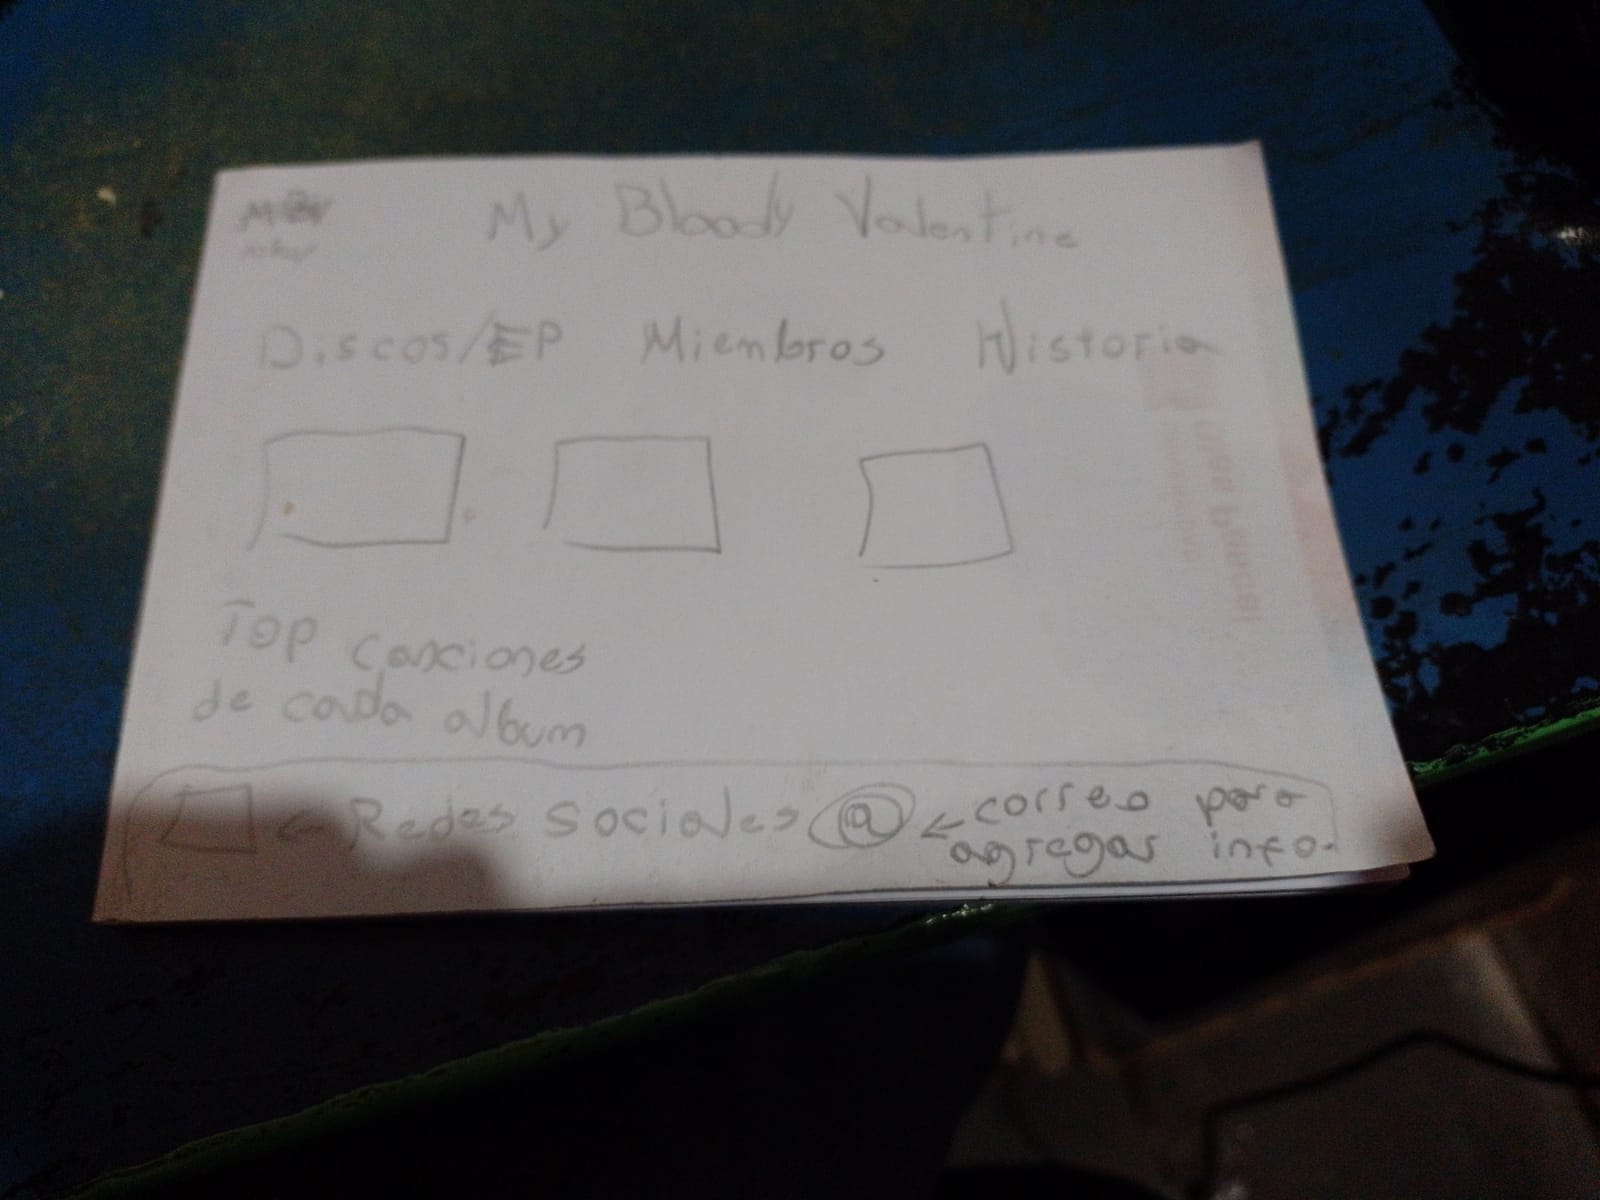 My Bloody Valentine
Discos/EP Miembros Historia
Top canciones
de cada album
← Redes sociales @ ← correo para
agregar info.